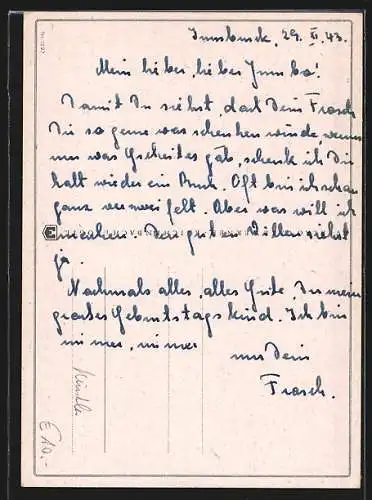 Innsbruck, 29. XI. 43.
Mein lieber, lieber Jumbo!
Damit Du siehst, daß Dein Frosch
Dir so gerne was schenken würde, wenns
nur was Gscheites gäb, schenk ich Dir
halt wieder ein Buch. Oft bin ich schon
ganz verzweifelt. Aber was will ich
machen. Den guten Willen siehst
ja.
Nochmals alles, alles Gute, Du mein
großes Geburtstagskind. Ich bin
immer, immer
nur Dein
Frosch.
€ 10,-